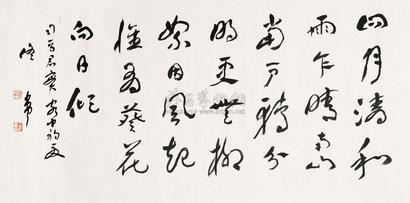 四月清和
雨乍晴南山
當户轉分
明更無柳
絮因風起
惟有葵花
向日傾
司馬君實客中初夏